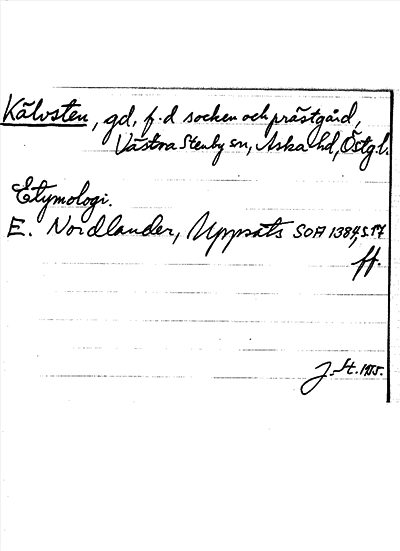 Kälvsten, gd, f.d socken och prästgård,
Västra Stenby sn, Aska hd, Östgl.
Etymologi.
E. Nordlander, Uppsats SOA 1384, s. 17
ff.
J. St. 1955.